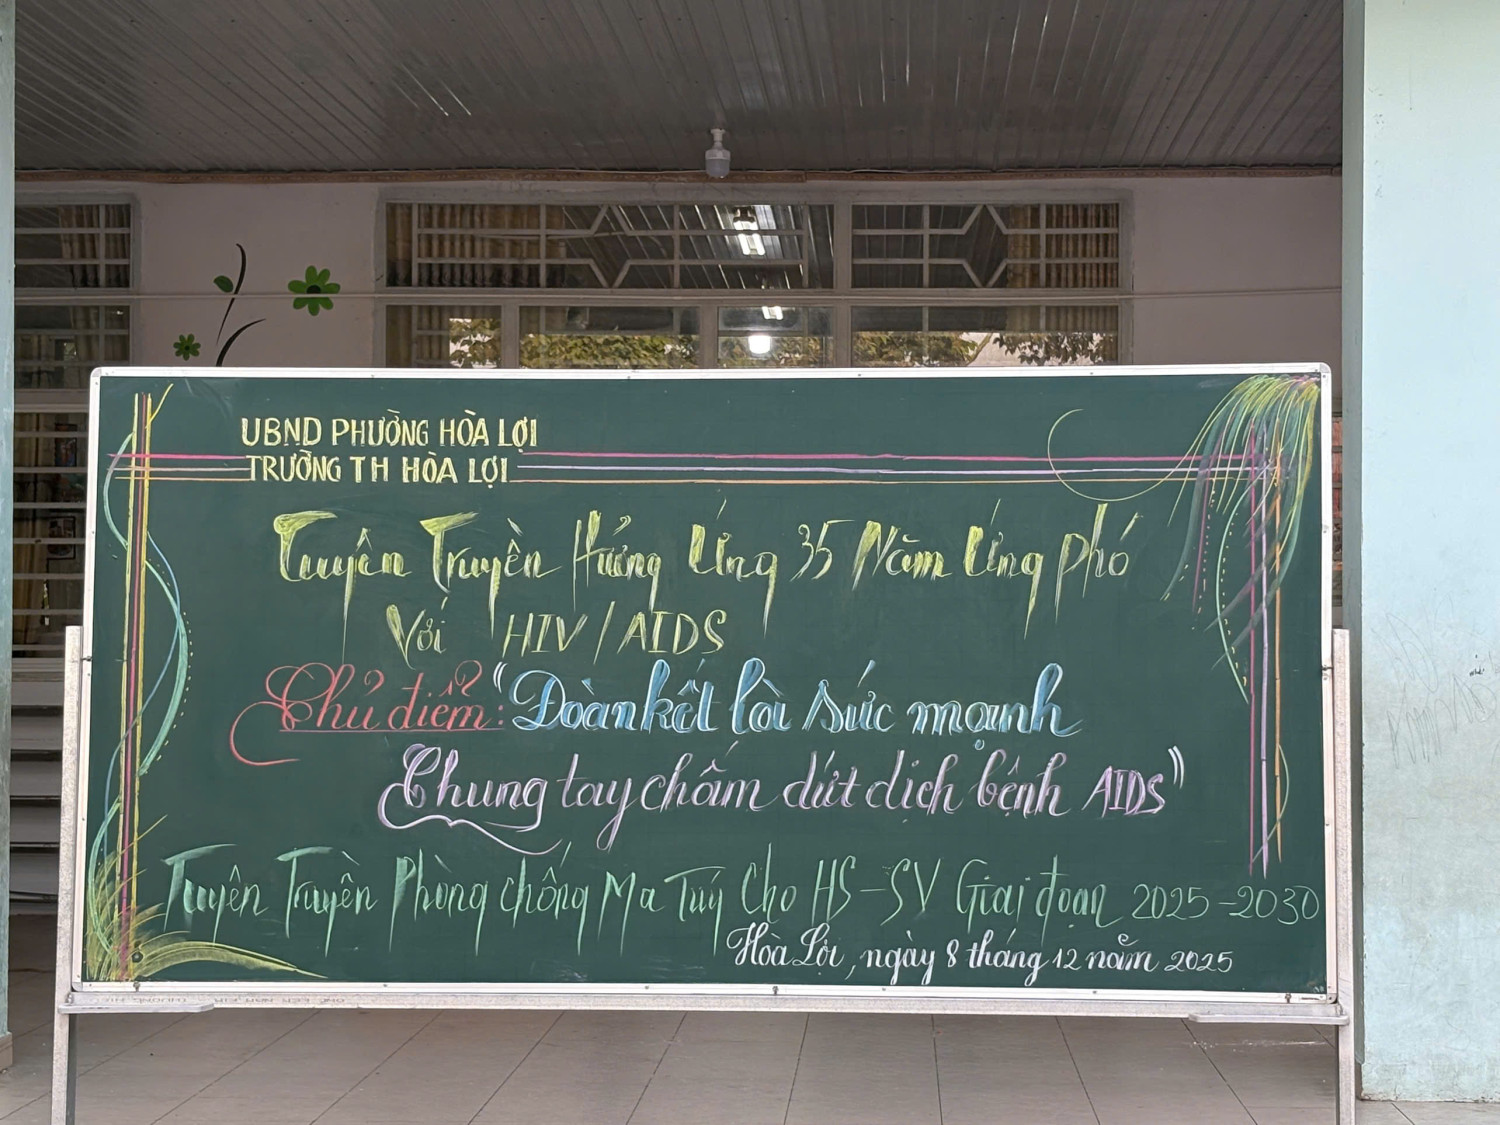 UBND PHƯỜNG HÒA LỢI
TRƯỜNG TH HÒA LỢI
Tuyên Truyền Hưởng Ứng 35 Năm Ứng Phó
Với HIV/AIDS
Chủ điểm: "Đoàn kết là sức mạnh
Chung tay chấm dứt dịch bệnh AIDS"
Tuyên Truyền Phòng Chống Ma Túy Cho HS-SV Giai đoạn 2025-2030
Hòa Lợi, ngày 8 tháng 12 năm 2025